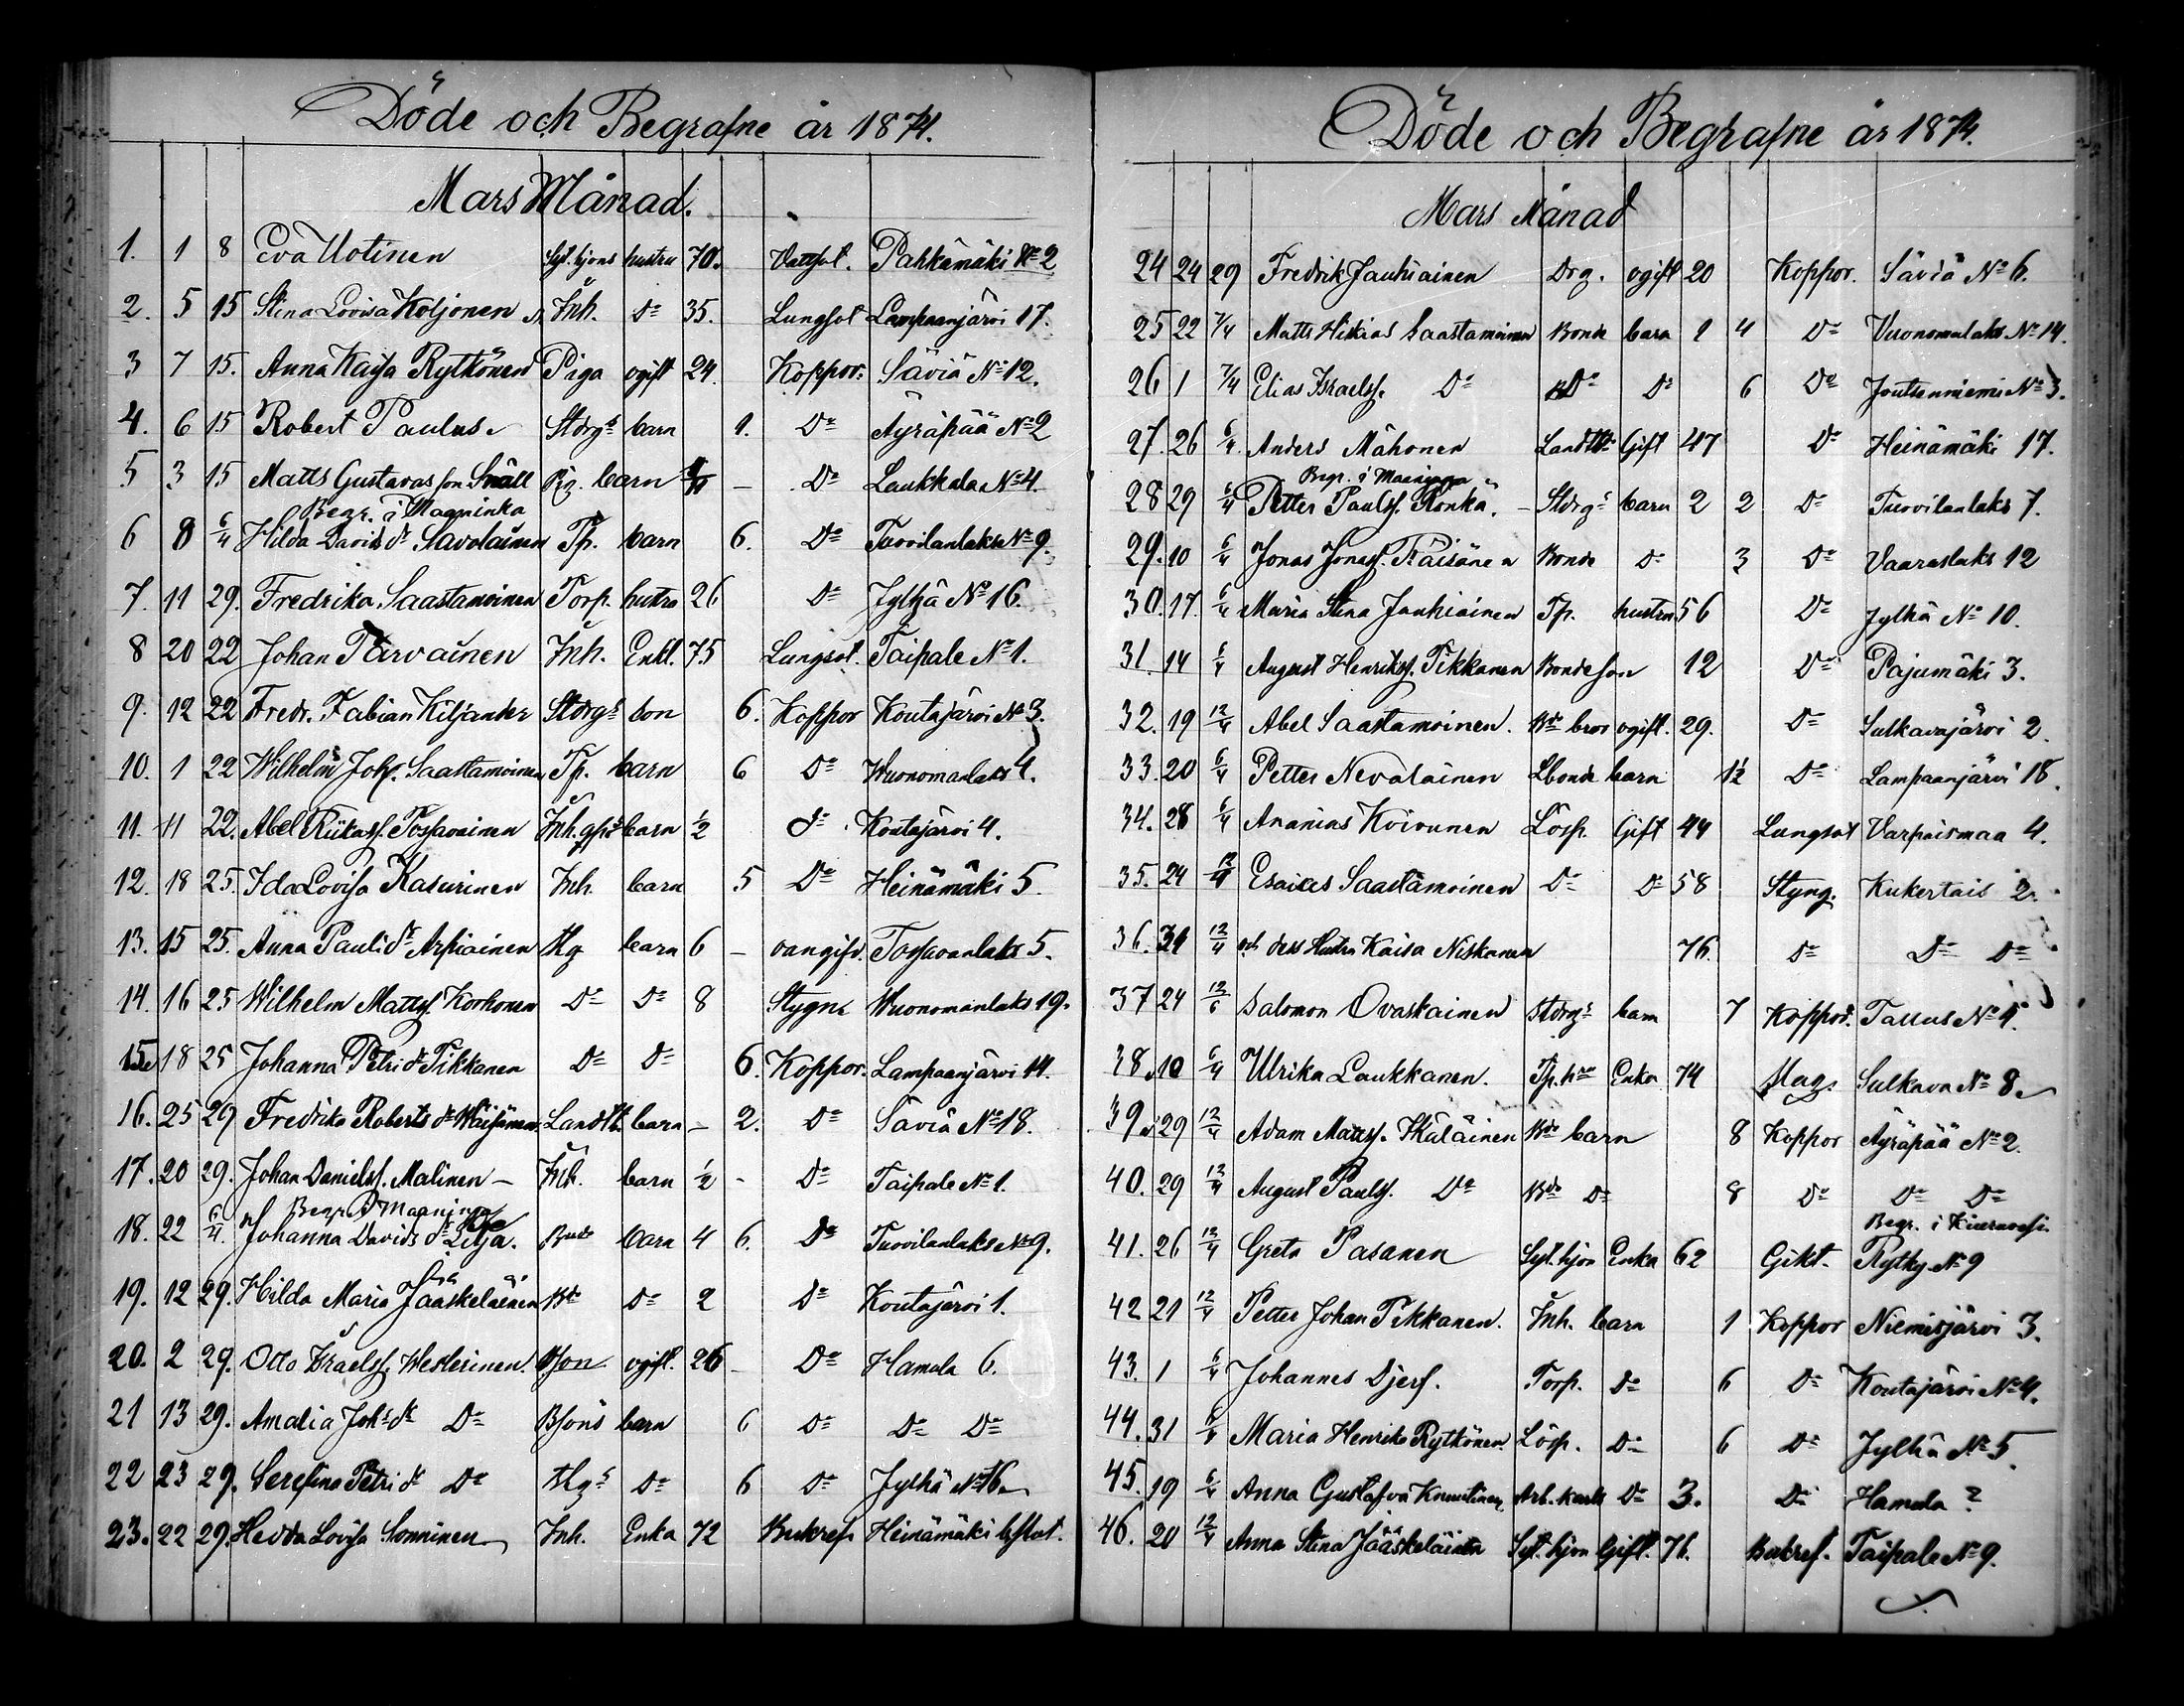 Döde och Begrafne år 1874.
Mars Månad.
1. 1 8 Eva Uotinen Syt.hjons hustru 70. Vattsot. Pahkamäki No 2
2. 5 15 Stina Lovisa Koljonen Inh. Do 35. Lungsot Lampaanjärvi 17.
3 7 15. Anna Kajsa Rytkönen Piga ogift 24. Koppor. Säviä No 12.
4. 6 15 Robert Paulus Stdrgs barn 1. Do Äyräpää No 2
5 3 15 Matts Gustavas son Snäll barn — Do Laukkala No 4.
Begr. i Maaninka
6 8 6/4 Hilda Davids dr Savolainen Tp. barn 6. Do Tuovilanlaks No 9.
7. 11 29. Fredrika Saastamoinen Torp. hustru 26 Do Jylhä No 16.
8 20 22 Johan Parvainen Inh. Enkl. 75 Lungsot. Taipale No 1.
9. 12 22 Fredr. Fabian Kiljander Stdrgs son 6. Koppor Koutajärvi No 3.
10. 1 22 Wilhelm Joh. Saastamoinen Tp. barn 6 Do Wuonamanlaks 4.
11. 11 22. Abel Tossavainen Inh. barn 1/2 do Koutajärvi 4.
12. 18 25. Ida Lovisa Kasurinen Inh. barn 5 Do Heinämäki 5.
13. 15 25. Anna Pauli dr Arpiainen barn 6 — oangifv. Tossavanlaks 5.
14. 16 25 Wilhelm Mattss. Korhonen Do Do 8 Stygn Wuonamanlaks 19.
15. 18 25 Johanna Petri dr Tikkanen Do Do 6. Koppor. Lampaanjärvi 14.
16. 25 29 Fredrika Roberts dr Väisänen Landtb. barn — 2. Do Säviä No 18.
17. 20 29. Johan Danielss. Malinen — Inh. barn 1/2 - Do Taipale No 1.
Begr. i Maaninga
18. 22 6/4 Johanna Davids dr Lilja. barn 4 6. Do Tuovilanlaks No 9.
19. 12 29. Hilda Maria Jääskeläinen Bde Do 2 Do Koutajärvi 1.
20. 2 29. Otto Israelss. Westerinen. Bson ogift. 26 - Do Hamula 6.
21 13 29. Amalia Johs dr Do Bsons barn 6 Do Do Do
22 23 29. Serefina Petri dr Do Do 6 Do Jylhä No 16
23. 22 29. Hedda Lovisa Sonninen Inh. Enka 72 Bukref. Heinämäki
Döde och Begrafne år 1874.
Mars Månad
24 24 29 Fredrik Jauhiainen Drg. ogift 20 Koppor. Säviä No 6.
25 22 7/4 Matts Hiskias Saastamoinen Bonde barn 1 4 Do Vuonamalaks No 14.
26 1 7/4 Elias Israelss. Do Do Do 6 Do Joutsenniemi No 3.
27. 26 6/4. Anders Mähonen Landtb. Gift 47 Do Heinämäki 17.
Begr. i Maaninga
28 29 6/4 Petter Paulss. Ronkä. — Stdrgs barn 2 2 Do Tuovilanlaks 7.
29. 10 6/4 Jonas Jonass. Räisänen Bonde Do 3 Do Vaaraslaks 12
30. 17. 6/4 Maria Stina Jauhiainen Tp. hustru 56 Do Jylhä No 10.
31. 14 6/4 August Henrikss. Tikkanen Bondeson 12 Do Pajumäki 3.
32. 19 12/4 Abel Saastamoinen. Bde bror ogift. 29. Do Sulkavajärvi 2.
33. 20 6/4 Petter Nevalainen Lbonde barn 1 1/2 Do Lampaanjärvi 18.
34. 28 6/4 Ananias Koivunen Lösp. Gift 44 Lungsot Varpaismaa 4.
35. 24 12/4 Esaias Saastamoinen Do Do 58 Styng. Kukertais 2.
36. 31 12/4 och dess Hustru Kaisa Niskanen 76. Do Do Do
37 24 12/6 Salomon Ovaskainen Stdrgs barn 7 Koppor. Tallus No 4.
38. 10 6/4 Ulrika Laukkanen. Enka 74 Mag. Sulkava No 8.
39. 29 12/4 Adam Matss. Ikäläinen Bde barn 8 Koppor Äyräpää No 2.
40. 29 12/4 August Paulss. Do Bde Do 8 Do Do Do
Begr. i Kiuruvesi
41. 26 12/4 Greta Pasanen Syt.hjon Enka 62 Gikt. Rytky No 9
42 21 12/4 Petter Johan Tikkanen. Inh. barn 1 Koppor Niemisjärvi 3.
43. 1 6/4 Johannes Djerf. Torp. Do 6 Do Koutajärvi No 4.
44. 31 6/4 Maria Henriks Rytkönen Lösp. Do 6 Do Jylhä No 5.
45. 19 6/4 Anna Gustafva Knuutinen Arb. karls Do 3. Do Hamula ?
46. 20 12/4 Anna Stina Jääskeläinen Syt. hjon Gift. 76. Bukref. Taipale No 9.